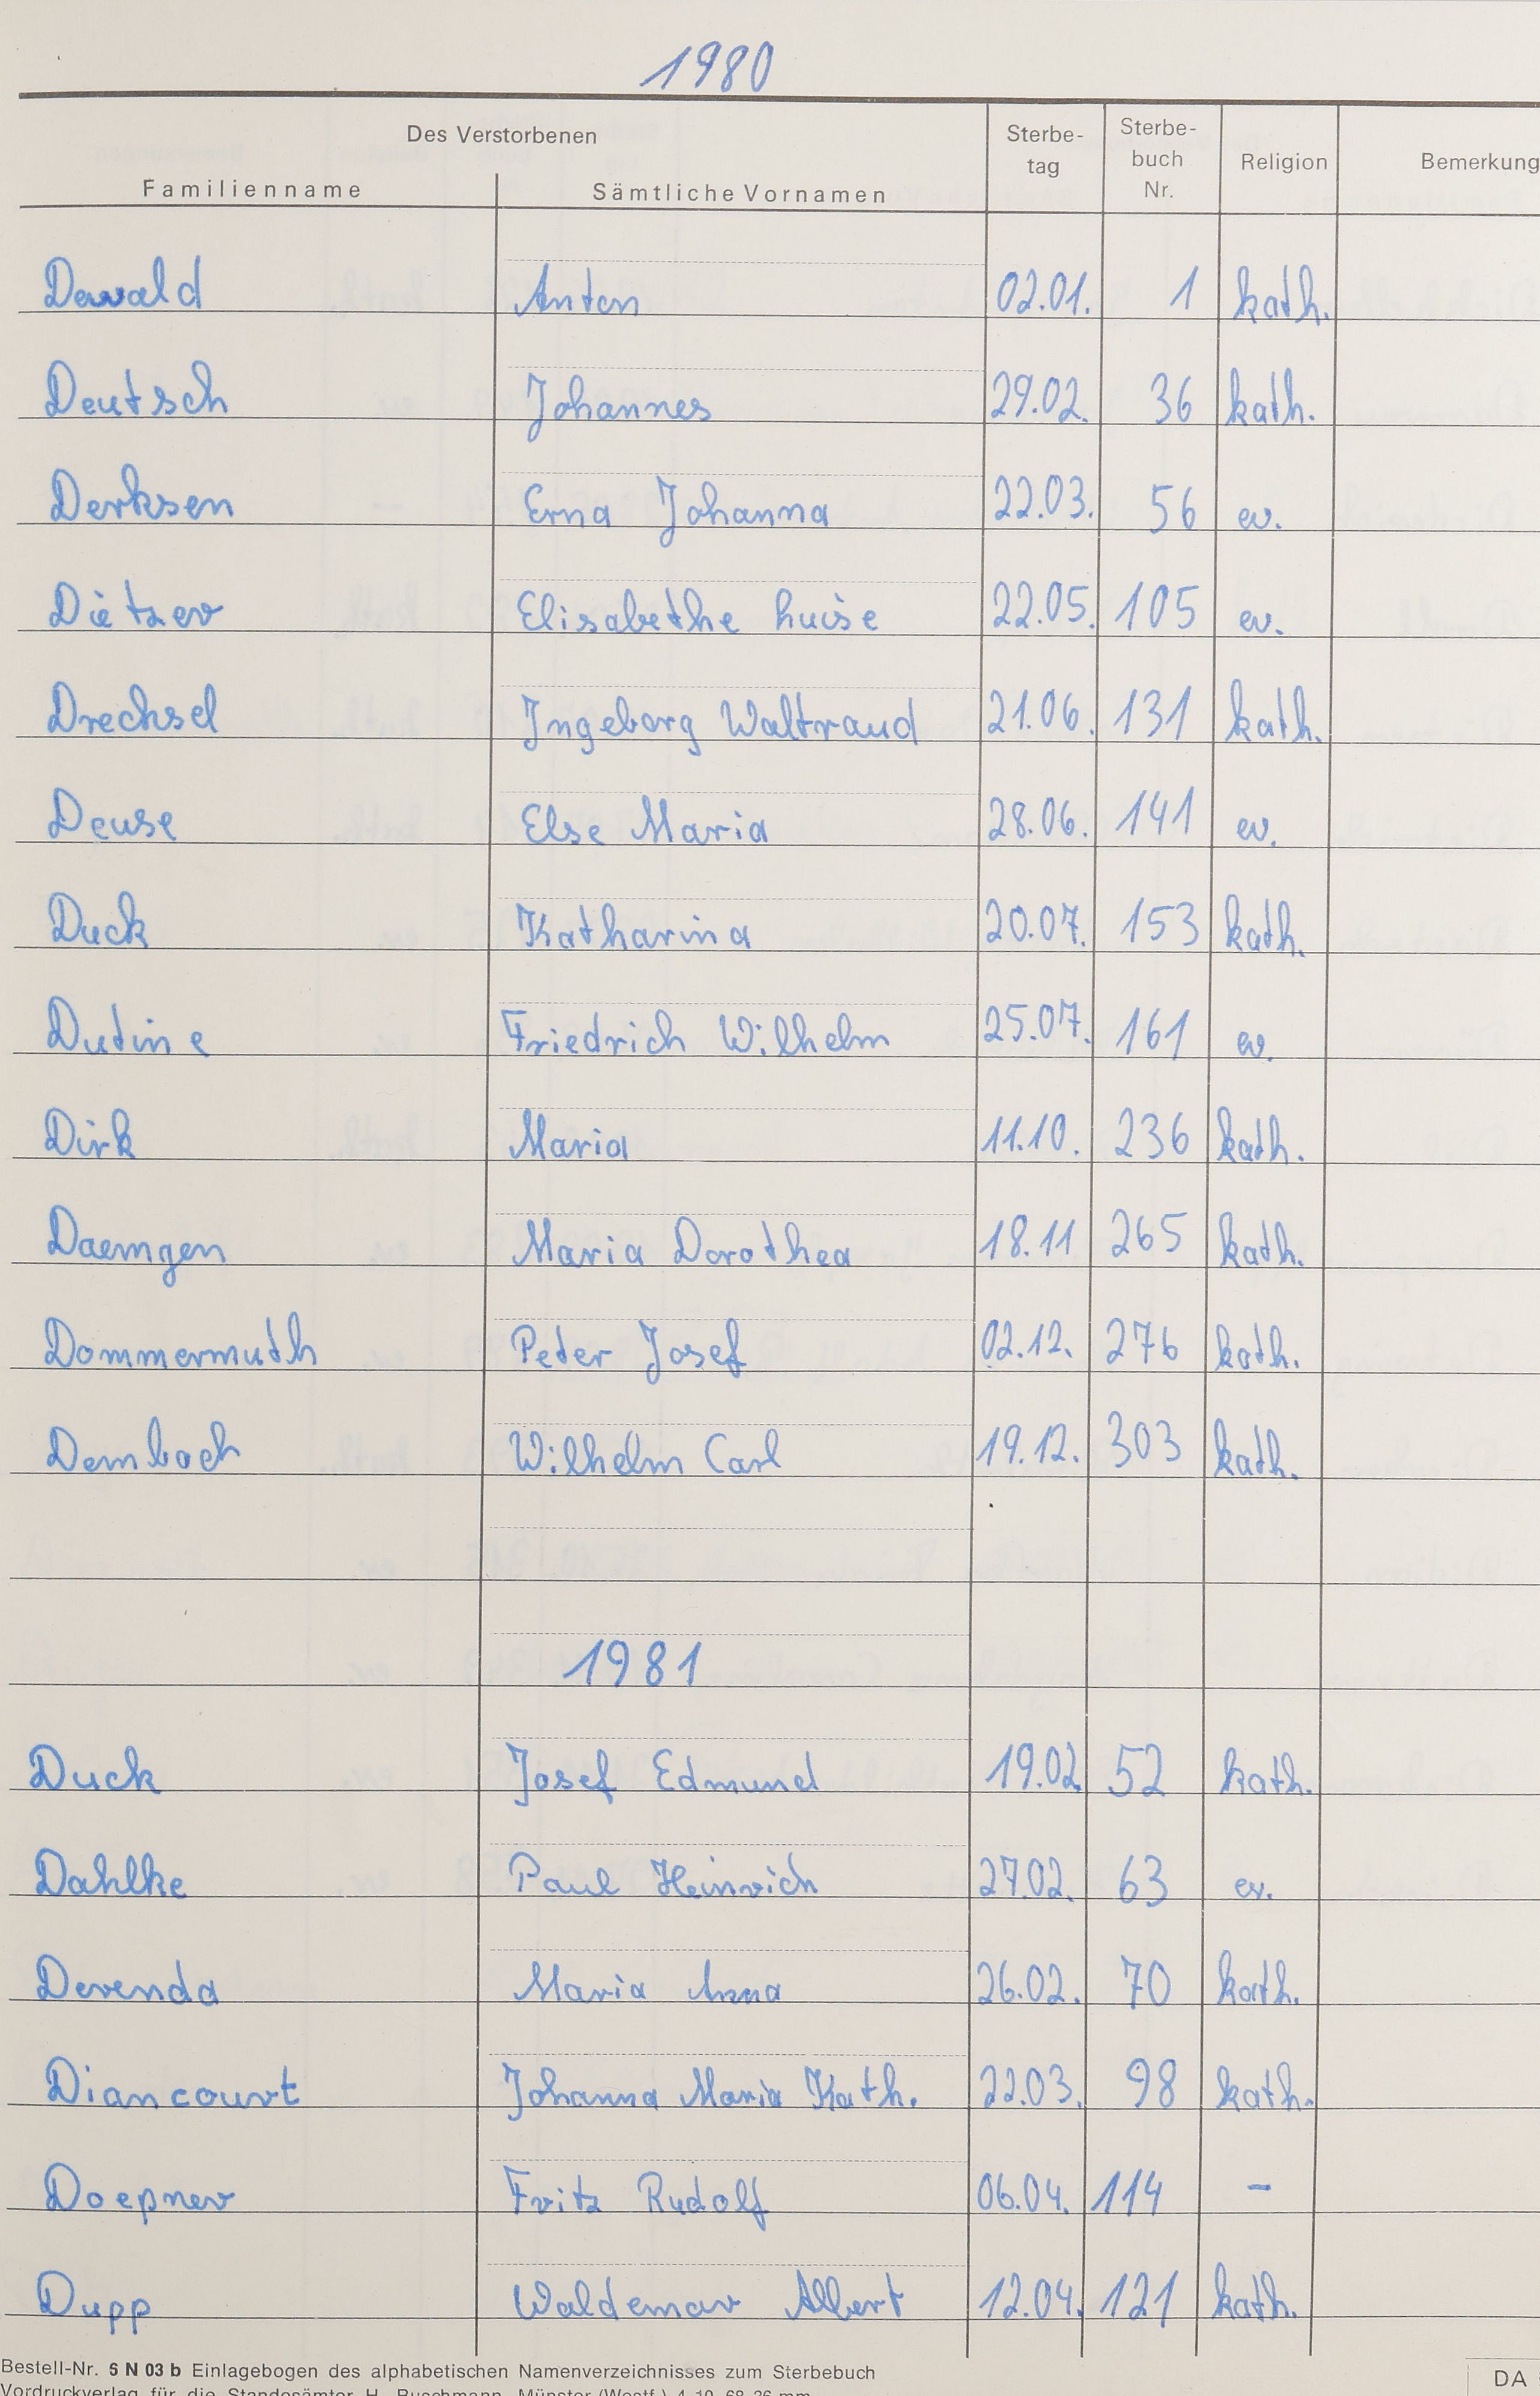 1980
Des Verstorbenen
Familienname Sämtliche Vornamen Sterbe-tag Sterbe-buch Nr. Religion Bemerkung
Dawald Anton 02.01. 1 kath.
Deutsch Johannes 29.02. 36 kath.
Derksen Erna Johanna 22.03. 56 ev.
Dietzer Elisabethe Luise 22.05. 105 ev.
Drechsel Ingeborg Waltraud 21.06. 131 kath.
Deuse Else Maria 28.06. 141 ev.
Duck Katharina 20.07. 153 kath.
Dutine Friedrich Wilhelm 25.07. 161 ev.
Dirk Maria 11.10. 236 kath.
Daemgen Maria Dorothea 18.11 265 kath.
Dommermuth Peter Josef 02.12. 276 kath.
Dembach Wilhelm Carl 19.12. 303 kath.
1981
Duck Josef Edmund 19.02. 52 kath.
Dahlke Paul Heinrich 27.02. 63 ev.
Derenda Maria Anna 26.02. 70 kath.
Diancourt Johanna Maria Kath. 22.03. 98 kath.
Doepner Fritz Rudolf 06.04. 114 –
Dupp Waldemar Albert 12.04. 121 kath.
Bestell-Nr. 6 N 03 b Einlagebogen des alphabetischen Namenverzeichnisses zum Sterbebuch
Vordruckverlag für die Standesämter H. Buschmann, Münster (Westf.)
DA